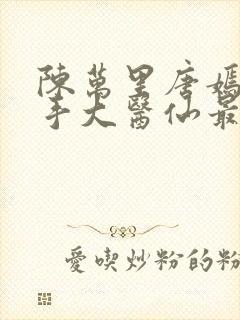 陳萬里唐嫣
手大醫仙最
愛喫炒粉的粉